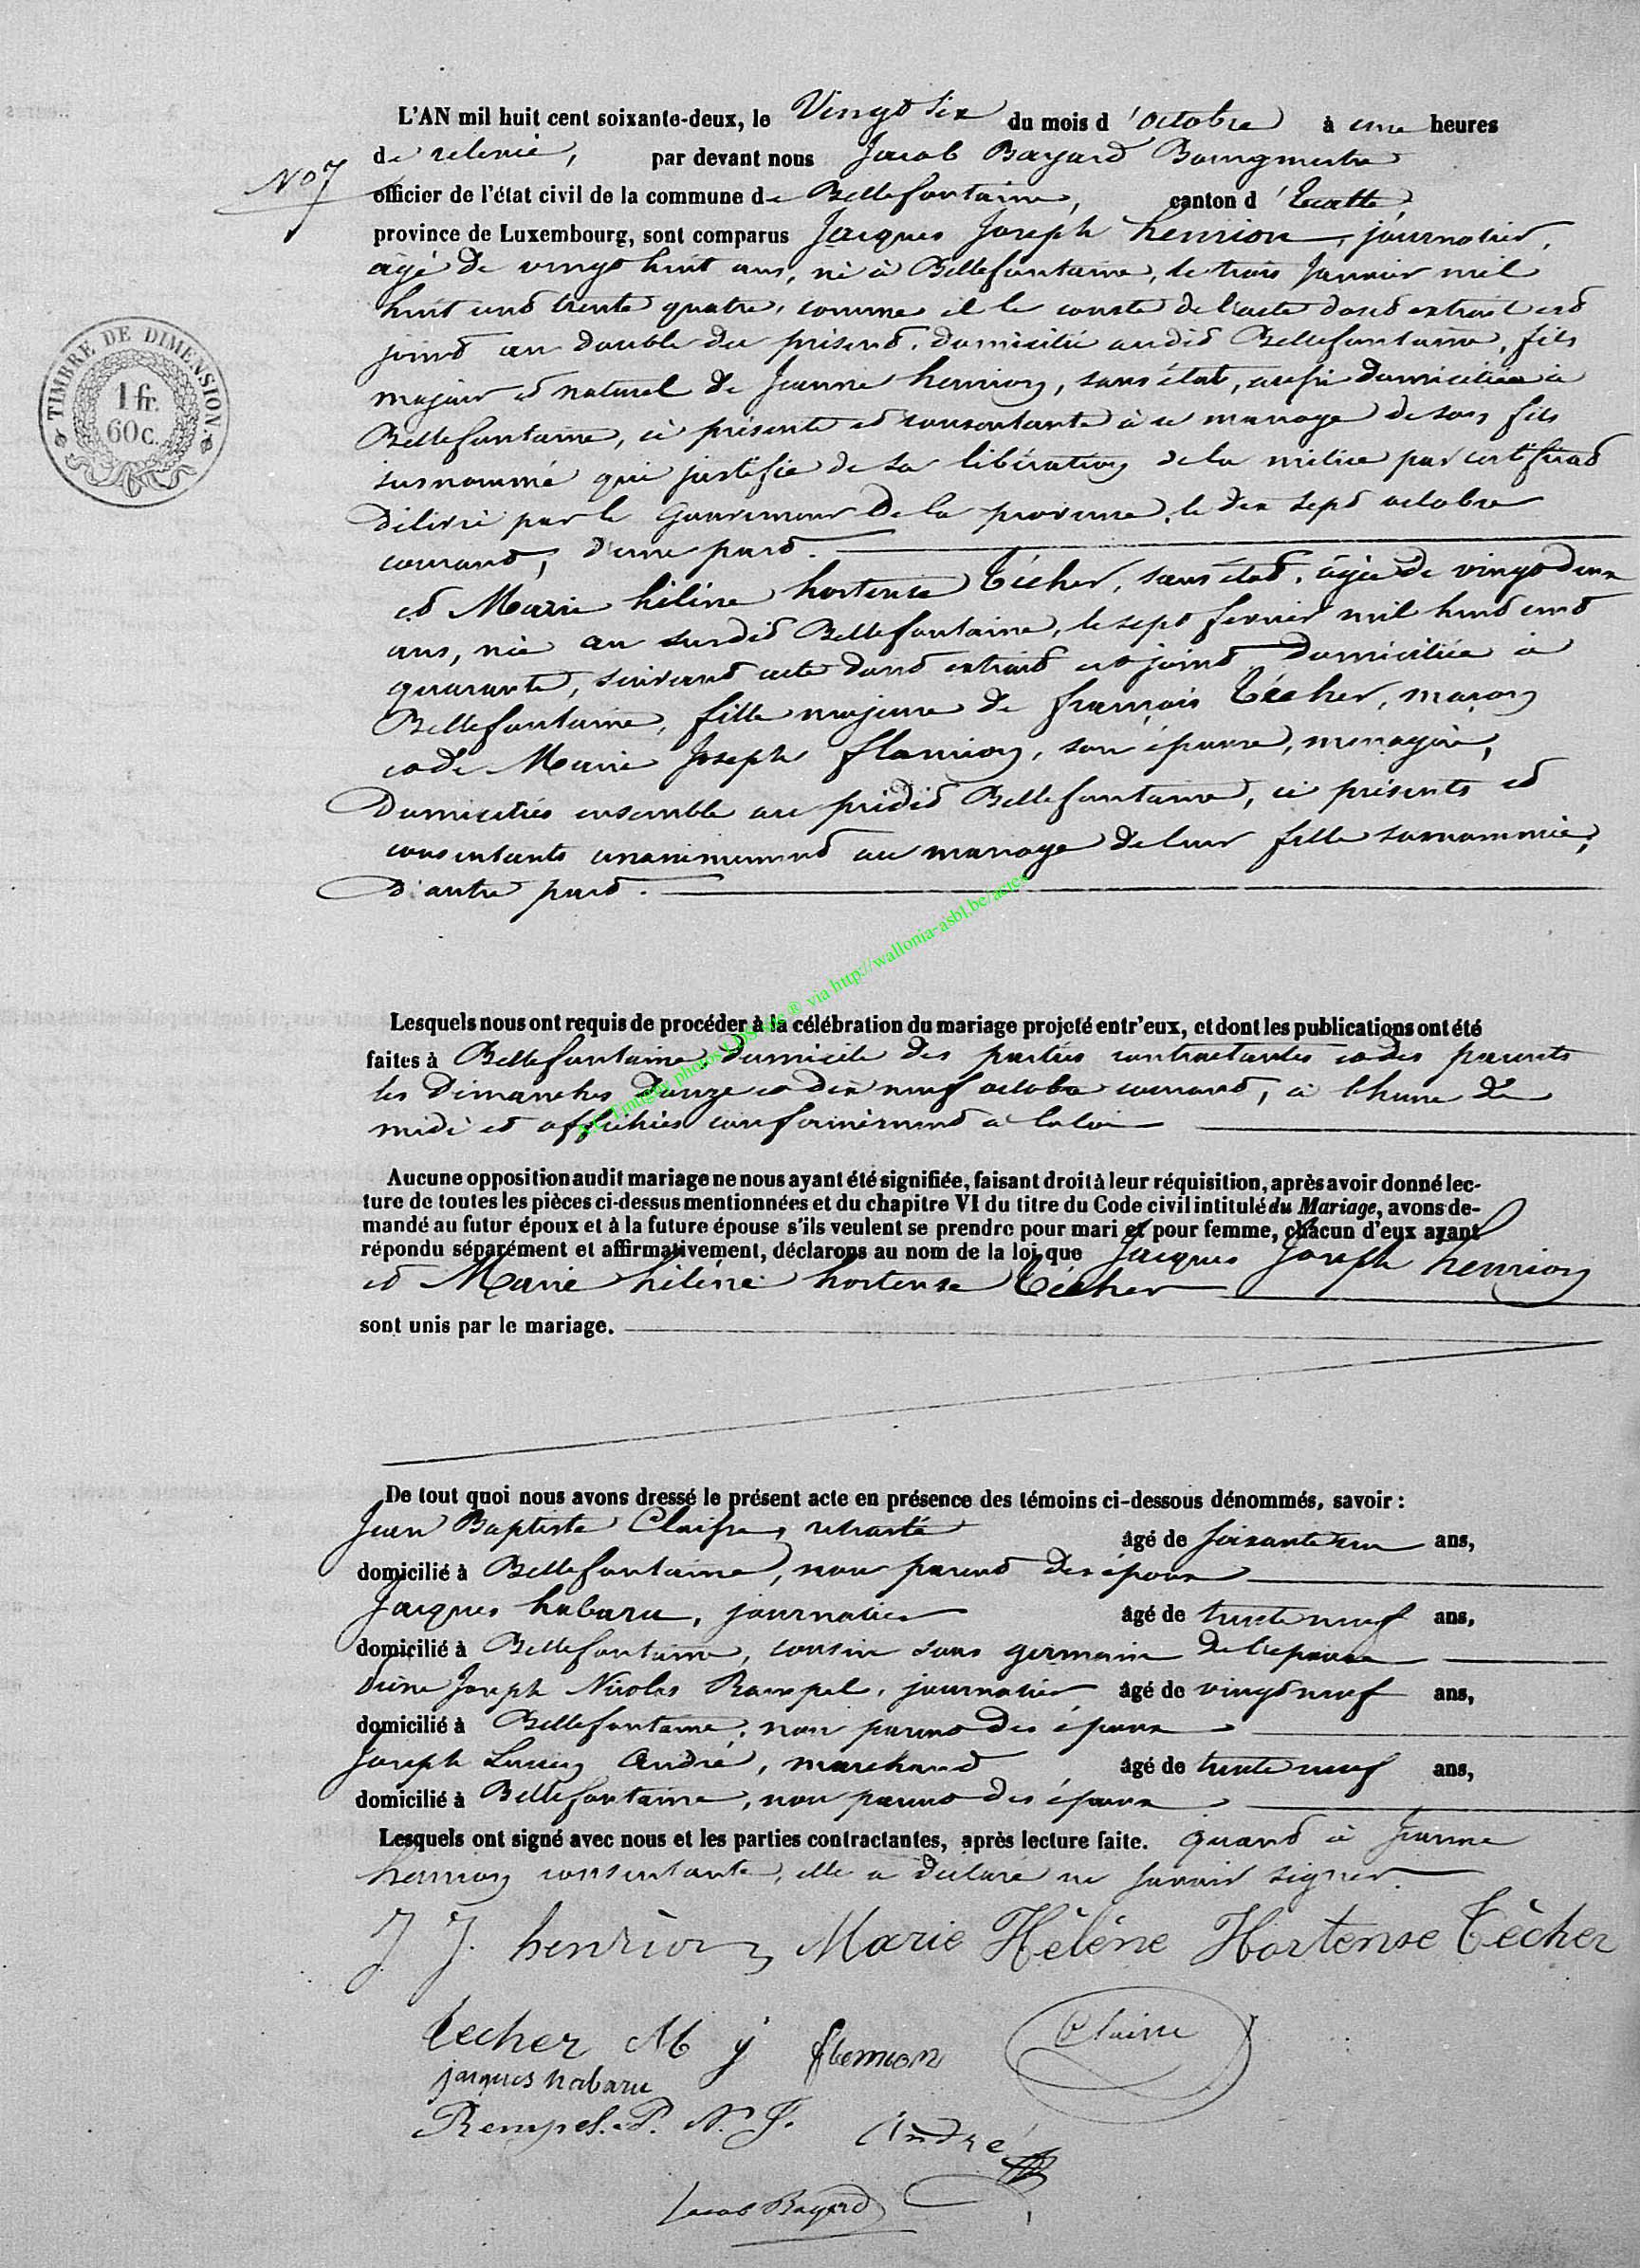 L'AN mil huit cent soixante-deux, le Vingt Six du mois d'octobre à une heures
de relevée, par devant nous Jacob Bayard Bourgmestre
No 7
officier de l'état civil de la commune de Bellefontaine, canton d'Etalle,
province de Luxembourg, sont comparus Jacques Joseph henrion, journalier,
âgé de vingt huit ans, né à Bellefontaine, le trois Janvier mil
huit cent trente quatre, comme il le conste de l'acte dont extrait est
joint au double du présent, domicilié audit Bellefontaine, fils
majeur et naturel de Jeanne henrion, sans état, aussi domiciliée à
Bellefontaine, ci présente et consentante à ce mariage de son fils
susnommé qui justifie de sa libération de la milice par certificat
délivré par le Gouverneur de la province, le dix sept octobre
courant, d'une part.
et Marie hélène hortense Técher, sans état, âgée de vingt deux
ans, née au susdit Bellefontaine, le sept fevrier mil huit cent
quarante, suivant acte dont extrait est joint, domiciliée à
Bellefontaine, fille majeure de françois Técher, maçon
et de Marie Joseph flamion, son épouse, menagère,
domiciliés ensemble au prédit Bellefontaine, ci présents et
consentants unanimement au mariage de leur fille surnommée,
d'autre part.
Lesquels nous ont requis de procéder à la célébration du mariage projeté entr'eux, et dont les publications ont été
faites à Bellefontaine domicile des parties contractantes et des parents
les dimanches douze et dix neuf octobre courant, à l'heure de
midi et affichées conformément à la loi
Aucune opposition audit mariage ne nous ayant été signifiée, faisant droit à leur réquisition, après avoir donné lec-
ture de toutes les pièces ci-dessus mentionnées et du chapitre VI du titre du Code civil intitulé du Mariage, avons de-
mandé au futur époux et à la future épouse s'ils veulent se prendre pour mari et pour femme, chacun d'eux ayant
répondu séparément et affirmativement, déclarons au nom de la loi que Jacques Joseph henrion
et Marie hélène hortense Técher
sont unis par le mariage.
De tout quoi nous avons dressé le présent acte en présence des témoins ci-dessous dénommés, savoir :
Jean Baptiste Claisse, retraité âgé de soixante un ans,
domicilié à Bellefontaine, non parent des époux
Jacques habaru, journalier âgé de trente neuf ans,
domicilié à Bellefontaine, cousin sous germain de l'épouse
Joseph Nicolas Rempel, journalier âgé de vingt neuf ans,
domicilié à Bellefontaine, non parent des époux
Joseph Lucien André, marchand âgé de trente neuf ans,
domicilié à Bellefontaine, non parent des époux
Lesquels ont signé avec nous et les parties contractantes, après lecture faite. quand à Jeanne
henrion consentante, elle a déclaré ne savoir signer.
J J. henrion Marie Hélène Hortense Técher
techer M j flemion
jacques habaru
Rempel. P. N. J. André
Jacob Bayard
TIMBRE DE DIMENSION.
1 fr.
60 c.
via http://wallonia-asbl.be/actes